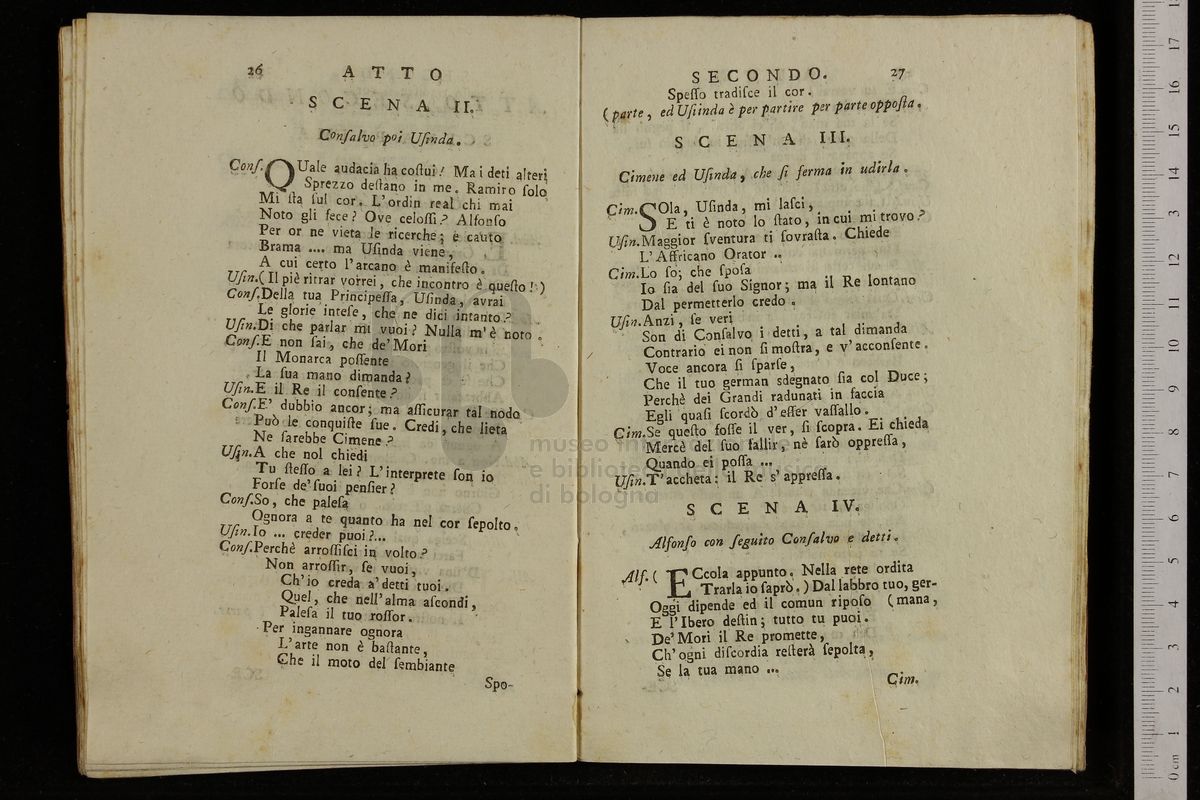 26 ATTO
SCENA II.
Conſalvo poi Uſinda.
Conſ. QUale audacia ha coſtui! Ma i deti alteri
Sprezzo deſtano in me. Ramiro ſolo
Mi ſta ſul cor. L'ordin real chi mai
Noto gli fece? Ove celoſſi? Alfonſo
Per or ne vieta le ricerche; e cauto
Brama .... ma Uſinda viene,
A cui certo l'arcano è manifeſto.
Uſin.(Il piè ritrar vorrei, che incontro è queſto!)
Conſ.Della tua Principeſſa, Uſinda, avrai
Le glorie inteſe, che ne dici intanto?
Uſin.Di che parlar mi vuoi? Nulla m'è noto.
Conſ.E non ſai, che de'Mori
Il Monarca poſſente
La ſua mano dimanda?
Uſin.E il Re il conſente?
Conſ.E' dubbio ancor; ma aſſicurar tal nodo
Può le conquiſte ſue. Credi, che lieta
Ne ſarebbe Cimene?
Uſin.A che nol chiedi
Tu ſteſſo a lei? L'interprete ſon io
Forſe de'ſuoi penſier?
Conſ.So, che paleſa
Ognora a te quanto ha nel cor ſepolto.
Uſin.Io ... creder puoi?...
Conſ.Perchè arroſſiſci in volto?
Non arroſſir, ſe vuoi,
Ch'io creda a'detti tuoi.
Quel, che nell'alma aſcondi,
Paleſa il tuo roſſor.
Per ingannare ognora
L'arte non è baſtante,
Che il moto del ſembiante
Spo-
SECONDO. 27
Speſſo tradiſce il cor.
(parte, ed Uſiinda è per partire per parte oppoſta.
SCENA III.
Cimene ed Uſinda, che ſi ferma in udirla.
Cim. SOla, Uſinda, mi laſci,
E ti è noto lo ſtato, in cui mi trovo?
Uſin.Maggior ſventura ti ſovraſta. Chiede
L'Affricano Orator ..
Cim.Lo ſo; che ſpoſa
Io ſia del ſuo Signor; ma il Re lontano
Dal permetterlo credo.
Uſin.Anzi, ſe veri
Son di Conſalvo i detti, a tal dimanda
Contrario ei non ſi moſtra, e v'acconſente.
Voce ancora ſi ſparſe,
Che il tuo german sdegnato ſia col Duce;
Perchè dei Grandi radunati in faccia
Egli quaſi ſcordò d'eſſer vaſſallo.
Cim.Se queſto foſſe il ver, ſi ſcopra. Ei chieda
Mercè del ſuo fallir, nè ſarò oppreſſa,
Quando ei poſſa ...
Uſin.T'accheta: il Re s'appreſſa.
SCENA IV.
Alfonſo con ſeguito Conſalvo e detti.
Alf. ( ECcola appunto. Nella rete ordita
Trarla io ſaprò.) Dal labbro tuo, ger-
Oggi dipende ed il comun ripoſo (mana,
E l'Ibero deſtin; tutto tu puoi.
De'Mori il Re promette,
Ch'ogni diſcordia reſterà ſepolta,
Se la tua mano ...
Cim.
museo in
e biblioteca
di bologna